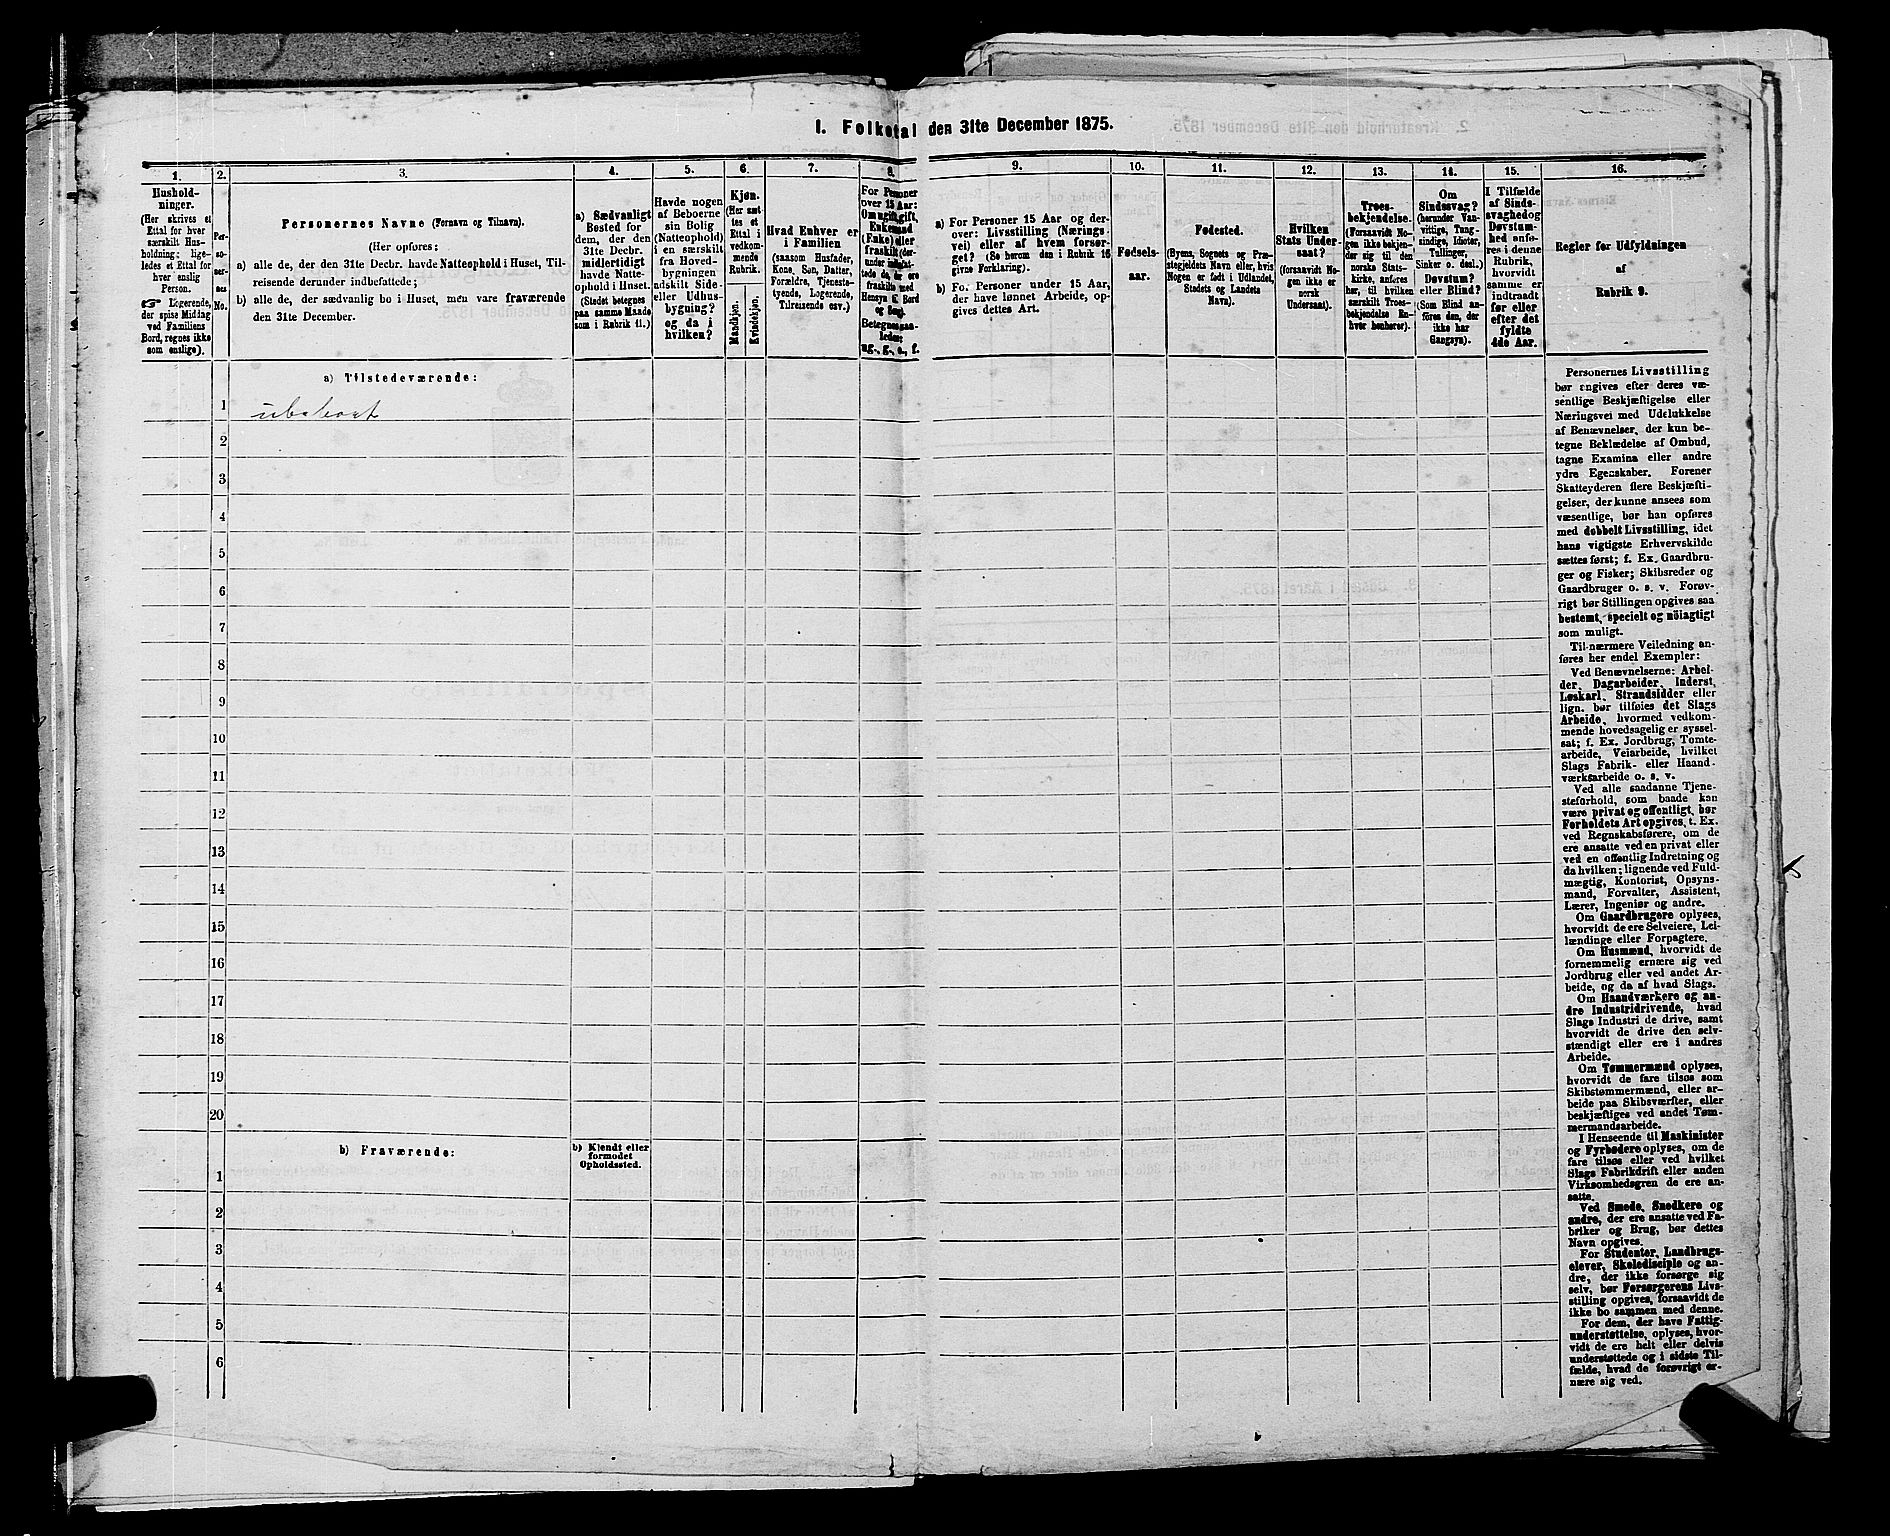 1. Folketal den 31te December 1875.
1.
Hushold-
ninger.
(Her skrives et
Ettal for hver
særskilt Hus-
holdning; lige-
ledes et Ettal for
hver enslig
Person.
☞ Logerende,
der spise Middag
ved Familiens
Bord, regnes ikke
som enslige).
2.
Per-
so-
ner-
nes
No.
3.
Personernes Navne (Fornavn og Tilnavn).
(Her opføres:
a) alle de, der den 31te Decbr. havde Natteophold i Huset, Til-
reisende derunder indbefattede;
b) alle de, der sædvanlig bo i Huset, men vare fraværende
den 31te December.
4.
a) Sædvanligt
Bosted for
dem, der den
31te Decbr.
midlertidigt
havde Natte-
ophold i Huset.
(Stedet betegnes
paa samme Maade
som i Rubrik 11.)
5.
Havde nogen
af Beboerne
sin Bolig
(Natteophold)
i en særskilt
fra Hoved-
bygningen
udskilt Side-
eller Udhus-
bygning?
og da i
hvilken?
6.
Kjøn.
(Her sæt-
tes et
Ettal i
vedkom-
mende
Rubrik.
Mandkjøn.
Kvindekjøn.
7.
Hvad Enhver er
i Familien
(saasom Husfader,
Kone, Søn, Datter,
Forældre, Tjeneste-
tyende, Logerende,
Tilreisende osv.)
8.
For Personer
over 15 Aar:
Om ugift, gift,
Enkemand
(Enke) eller
fraskilt (der-
under indbefat-
tede de, der ere
fraskilte med
Hensyn til Bord
og Seng).
Betegnes saa-
ledes:
ug., g., e., f.
9.
a) For Personer 15 Aar og der-
over: Livsstilling (Nærings-
vei) eller af hvem forsør-
get? (Se herom den i Rubrik 16
givne Forklaring).
b) Fo. Personer under 15 Aar,
der have lønnet Arbeide, op-
gives dettes Art.
10.
Fødsels-
aar.
11.
Fødested.
(Byens, Sognets og Præ-
stegjeldets Navn eller, hvis
Nogen er født i Udlandet,
Stedets og Landets
Navn).
12.
Hvilken
Stats Under-
saat?
(forsaavidt No-
gen ikke er
norsk
Undersaat).
13.
Troes-
bekjendelse.
(Forsaavidt No-
gen ikke bekjen-
der sig til den
norske Stats-
kirke, anføres
her, til hvilken
særskilt Troes-
bekjendelse En-
hver henhører).
14.
Om
Sindssvag?
(herunder Van-
vittige, Tung-
sindige, Idioter,
Tullinger,
Sinker o. desl.)
Døvstum?
eller Blind?
(Som Blind an-
føres den, der
ikke har
Gangsyn).
15.
I Tilfælde
af Sinds-
svaghed og
Døvstum-
hed anfø-
res i denne
Rubrik,
hvorvidt
samme er
indtraadt
før eller
efter det
fyldte
4de Aar.
16.
Regler for Udfyldningen
af
Rubrik 9.
a) Tilstedeværende:
1 ubeboet
2
3
4
5
6
7
8
9
10
11
12
13
14
15
16
17
18
19
20
b) Fraværende:
b) Kjendt eller
formodet
Opholdssted.
1
2
3
4
5
6
Personernes Livsstilling
bør angives efter deres væ-
sentlige Beskjæftigelse eller
Næringsvei med Udelukkelse
af Benævnelser, der kun be-
tegne Beklædelse af Ombud,
tagne Examina eller andre
ydre Egenskaber. Forener
Skatteyderen flere Beskjæfti-
gelser, der kunne ansees som
væsentlige, bør han opføres
med dobbelt Livsstilling, idet
hans vigtigste Erhvervskilde
sættes først; f. Ex. Gaardbru-
ger og Fisker; Skibsreder og
Gaardbruger o. s. v. Forøv-
rigt bør Stillingen opgives saa
bestemt, specielt og nöiagtigt
som muligt.
Til nærmere Veiledning an-
føres her endel Exempler:
Ved Benævnelserne: Arbei-
der, Dagarbeider, Inderst,
Løskarl, Strandsidder eller
lign. bør tilføies det Slags
Arbeide, hvormed vedkom-
mende hovedsagelig er syssel-
sat; f. Ex. Jordbrug, Tømte-
arbeide, Veiarbeide, hvilket
Slags Fabrik- eller Haand-
værksarbeide o. s. v.
Ved alle saadanne Tjene-
steforhold, som baade kan
være privat og offentligt, bør
Forholdets Art opgives, t. Ex.
ved Regnskabsførere, om de
ere ansatte ved en privat eller
ved en offentlig Indretning og
da hvilken; lignende ved Fuld-
mægtig, Kontorist, Opsyns-
mand, Forvalter, Assistent,
Lærer, Ingeniør og andre.
Om Gaardbrugere oplyses,
hvorvidt de ere Selveiere, Lei-
lændinge eller Forpagtere.
Om Husmænd, hvorvidt de
fornemmelig ernære sig ved
Jordbrug eller ved andet Ar-
beide, og da af hvad Slags.
Om Haandværkere og an-
dre Industridrivende, hvad
Slags Industri de drive, samt
hvorvidt de drive den selv-
stændigt eller ere i andres
Arbeide.
Om Tømmermænd oplyses,
hvorvidt de fare tilsøs som
Skibstømmermænd, eller ar-
beide paa Skibsværfter, eller
beskjæftiges ved andet Tøm-
mermandsarbeide.
I Henseende til Maskinister
og Fyrbødere oplyses, om de
fare tilsøs eller ved hvilket
Slags Fabrikdrift eller anden
Virksomhedsgren de ere an-
satte.
Ved Smede, Snedkere og
andre, der ere ansatte ved Fa-
briker og Brug, bør dettes
Navn opgives.
For Studenter, Landbrugs-
elever, Skoledisciple og an-
dre, der ikke forsørge sig
selv, bør Forsørgerens Livs-
stilling opgives, forsaavidt de
ikke bo sammen med denne.
For dem, der have Fattig-
understøttelse, oplyses, hvor-
vidt de ere helt eller delvis
understøttede og i sidste Til-
fælde, hvad de forøvrigt er-
nære sig ved.